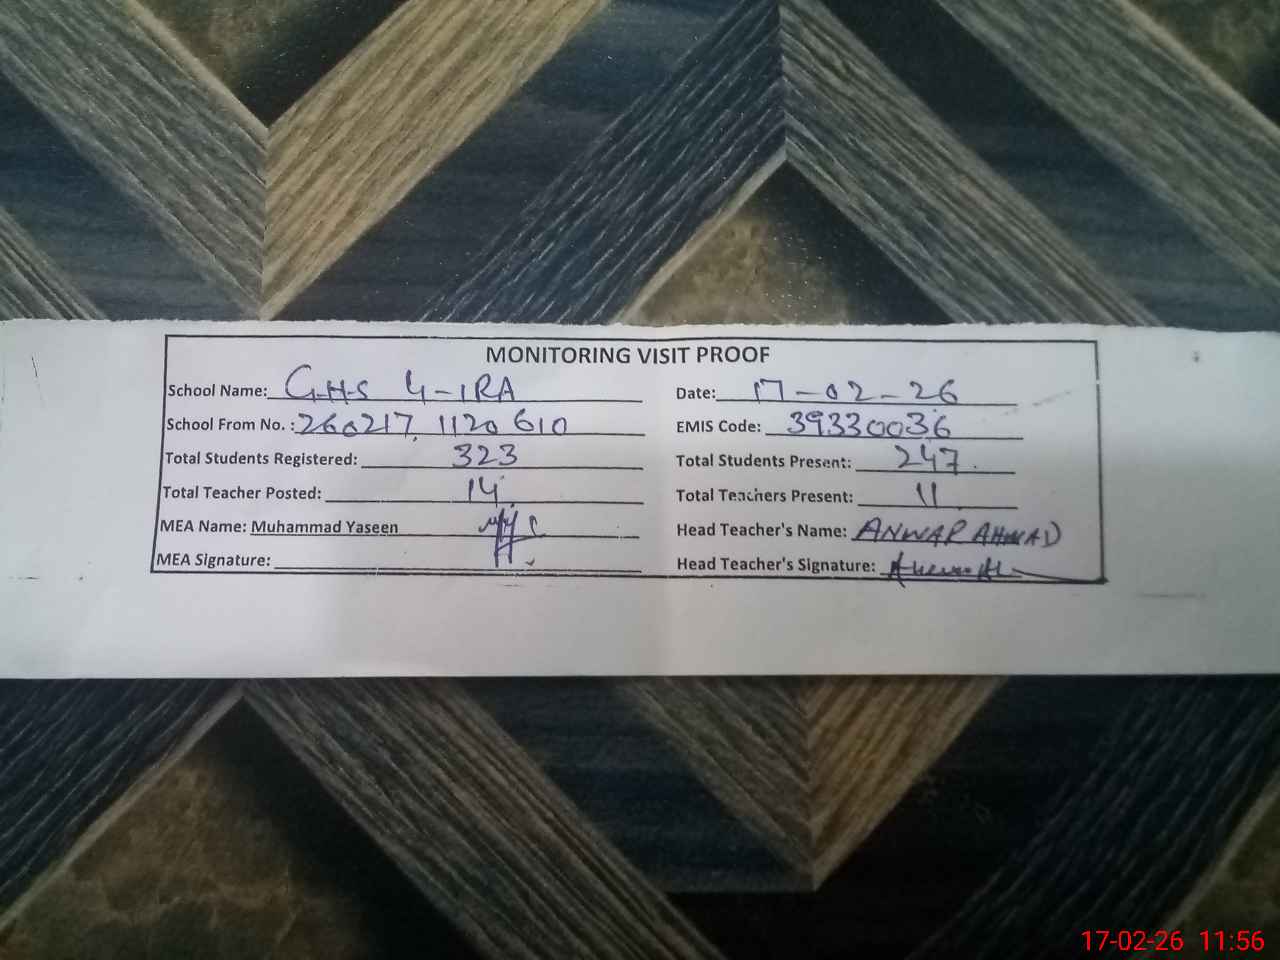 MONITORING VISIT PROOF
School Name: G.H.S 4-1RA Date: 17-02-26
School From No. : 260217 1120 610 EMIS Code: 39330036
Total Students Registered: 323 Total Students Present: 247
Total Teacher Posted: 14 Total Teachers Present: 11
MEA Name: Muhammad Yaseen Head Teacher's Name: ANWAR AHMAD
MEA Signature: Head Teacher's Signature:
17-02-26 11:56